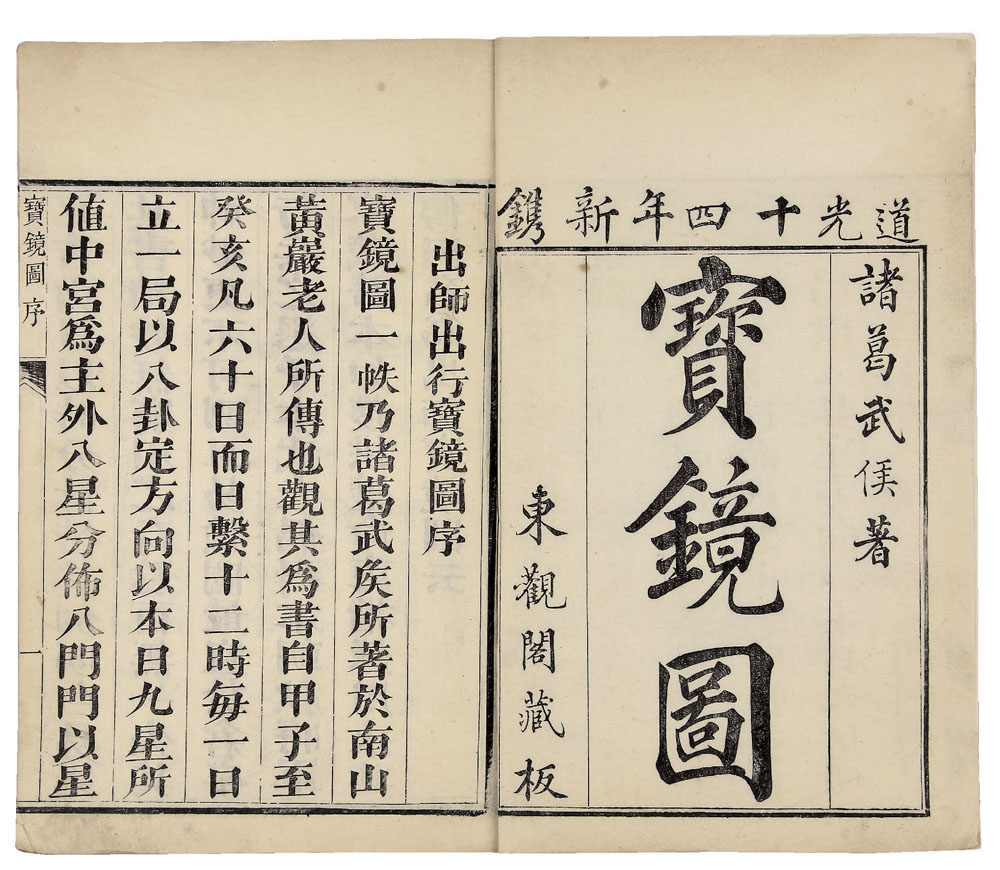 道光十四年新鐫
諸葛武侯著
寶鏡圖
東觀閣藏板
出師出行寶鏡圖序
寶鏡圖一帙乃諸葛武矦所著於南山
黃巖老人所傳也觀其爲書自甲子至
癸亥凡六十日而日繫十二時每一日
立一局以八卦定方向以本日九星所
値中宮爲主外八星分佈八門門以星
寶鏡圖 序